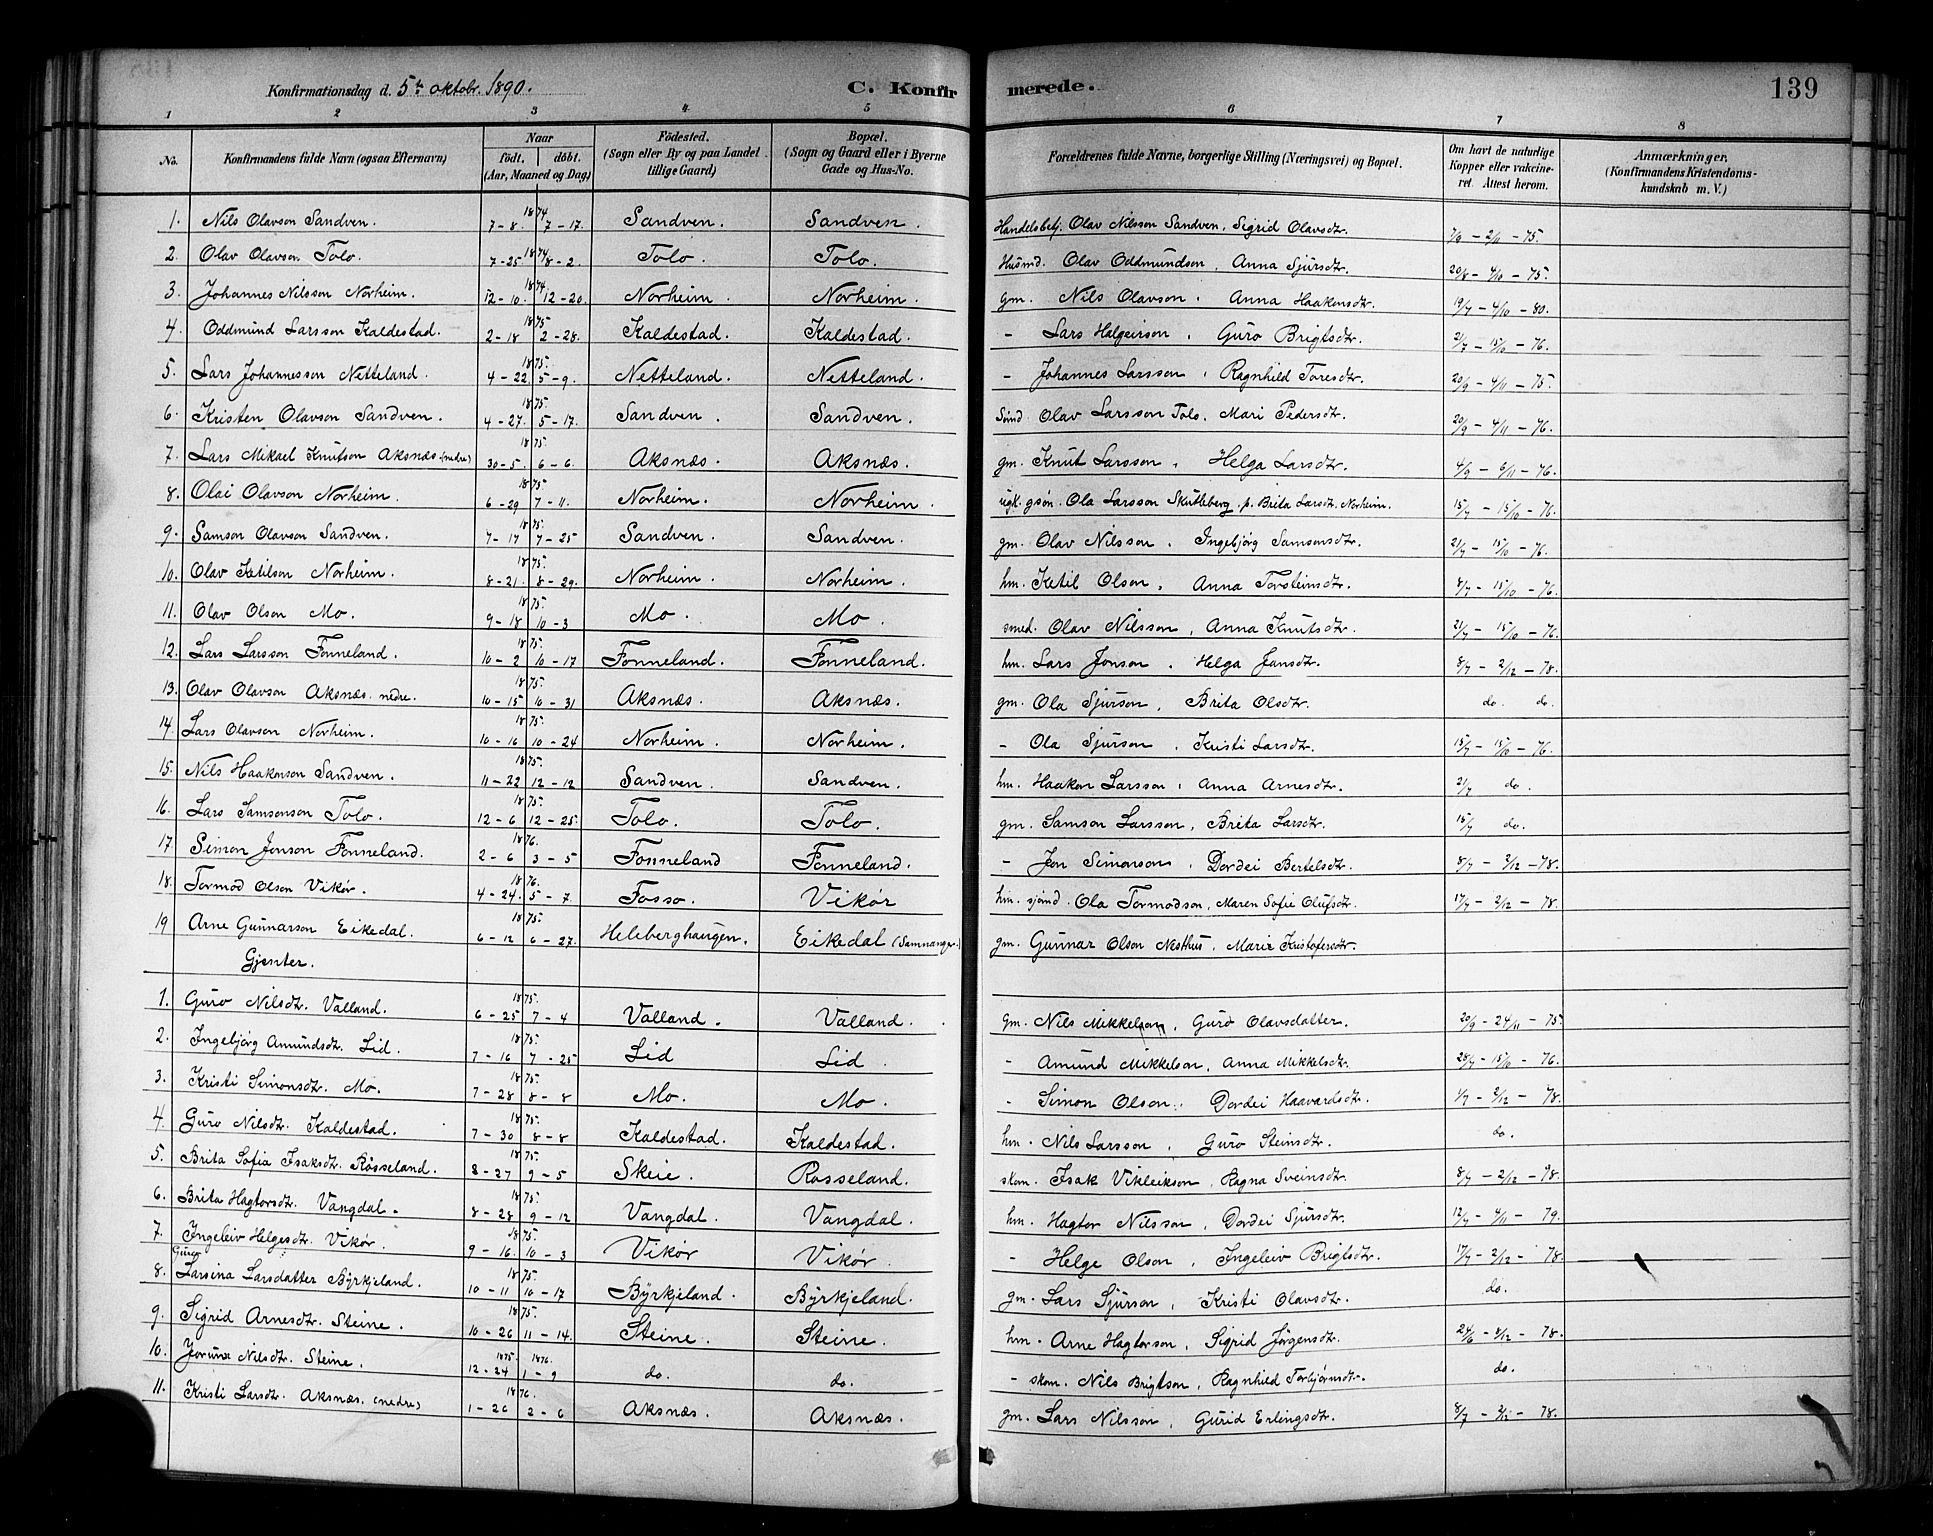 Konfirmationsdag d. 5te oktobr. 1890. C. Konfirmerede. 139
1 2 3 4 5 6 7 8
No. Konfirmandens fulde Navn (ogsaa Efternavn) Naar födt. döbt. (Aar, Maaned og Dag) Födested. (Sogn eller By og paa Landet tillige Gaard) Bopæl. (Sogn og Gaard eller i Byerne Gade og Hus-No. Forældrenes fulde Navne, borgerlige Stilling (Næringsvei) og Bopæl. Om havt de naturlige Kopper eller vakcineret. Attest herom. Anmærkninger. (Konfirmandens Kristendomskundskab m. V.)
1. Nils Olavson Sandven. 1874 7-8. 7-17. Sandven. Sandven. Handelsbetj. Olav Nilsson Sandven, Sigrid Olavsdtr. 7/6 - 2/11 - 75.
2. Olav Olavson Tolo. 1874 7-25 8-2. Tolo. Tolo. Husmd. Olav Oddmundson, Anna Sjursdtr. 20/8 - 4/10 - 75.
3. Johannes Nilsson Norheim. 1874 12-10. 12-20. Norheim. Norheim. gm. Nils Olavson, Anna Haakonsdtr. 19/7 - 4/10 - 80.
4. Oddmund Larsson Kaldestad. 1875 2-18 2-28. Kaldestad. Kaldestad. - Lars Halgeirson, Guro Brigtsdtr. 2/7 - 15/10 - 76.
5. Lars Johannesson Netteland. 1875. 4-22. 5-9. Netteland. Netteland. - Johannes Larsson, Ragnhild Toresdtr. 20/9 - 4/11 - 75.
6. Kristen Olavson Sandven. 1875. 4-27. 5-17. Sandven. Sandven. Olav Larsson Tolo, Mari Pedersdtr. 20/9 - 4/11 - 76.
7. Lars Mikael Knutson Aksnæs (nedre) 1875. 30-5. 6-6. Aksnæs. Aksnæs. gm. Knut Larsson, Helga Larsdtr. 4/9 - 6/11 - 76.
8. Olai Olavson Norheim. 1875. 6-29 7-11. Norheim. Norheim. ugk. gsøn. Ola Larsson Skutleberg, p. Brita Larsdtr. Norheim. 15/7 - 15/10 - 76.
9. Samson Olavson Sandven. 1875. 7-17 7-25 Sandven. Sandven. gm. Olav Nilsson, Ingebjörg Samsonsdtr. 21/7 - 15/10 - 76.
10. Olav Ketilson Norheim. 1875. 8-21. 8-29. Norheim. Norheim. hm. Ketil Olson, Anna Torsteinsdtr. 8/7 - 15/10 - 76.
11. Olav Olson Mo. 1875. 9-18 10-3 Mo. Mo. smed. Olav Nilsson, Anna Knutsdtr. 21/7 - 15/10 - 76.
12. Lars Larsson Fonneland. 1875. 10-2 10-17 Fonneland. Fonneland. hm. Lars Jonson, Helga Jansdtr. 8/7 - 2/12 - 78.
13. Olav Olavson Aksnæs. nedre. 1875. 10-15 10-31 Aksnæs. Aksnæs. gm. Ola Sjurson, Brita Olsdtr. do. do.
14. Lars Olavson Norheim. 1875. 10-16 10-24 Norheim. Norheim. - Ola Sjurson, Kristi Larsdtr. 15/7 - 15/10 - 76.
15. Nils Haakonson Sandven. 1875. 11-22 12-12 Sandven. Sandven. hm. Haakon Larsson, Anna Arnesdtr. 2/7 do.
16. Lars Samsonson Tolo. 1875. 12-6 12-25. Tolo. Tolo. gm. Samson Larsson, Brita Larsdtr. 15/7 do.
17. Simon Jonson Fonneland. 1876. 2-6 3-5 Fonneland Fonneland. - Jon Simonson, Dordei Bertelsdtr. 8/7 - 2/12 - 78.
18. Tormod Olson Vikør. 1876. 4-24. 5-7. Fosso. Vikør hm. sjömd. Ola Tormodson, Maren Sofie Olufsdtr. 17/7 - 2/12 - 78.
19 Arne Gunnarson Eikedal. 1875. 6-12 6-27. Heleberghaugen. Eikedal (Samnanger.) gm. Gunnar Olson Nesthus, Marie Kristofersdtr.
Gjenter.
1. Guro Nilsdtr. Valland. 1875. 6-25 7-4 Valland. Valland. gm. Nils Mikkelson, Guro Olavsdatter. 20/9 - 24/11 - 75.
2. Ingebjörg Amundsdtr. Lid. 1875. 7-16 7-25 Lid Lid. - Amund Mikkelson, Anna Mikkelsdtr. 28/7 - 15/10 - 76.
3. Kristi Simonsdtr. Mo. 1875. 7-28 8-8 Mo. Mo. - Simon Olson, Dordei Haavardsdtr. 1/7 - 2/12 - 78.
4. Guro Nilsdtr. Kaldestad. 1875. 7-30 8-8 Kaldestad. Kaldestad. hm. Nils Larsson, Guro Steinsdtr. do.
5. Brita Sofia Isaksdtr. Rosseland. 1875. 8-27 9-5 Skeie. Rosseland. skom. Isak Vikleikson, Ragna Sveinsdtr. 8/7 - 2/12 - 78.
6. Brita Hagtorsdtr. Vangdal. 1875. 8-28 9-12 Vangdal. Vangdal. hm. Hagtor Nilsson, Dordei Sjursdtr. 12/7 - 4/11 - 79.
7. Ingeleiv Helgesdtr. Vikør. 1875. 9-16. 10-3 Vikør Vikør. - Helge Olson, Ingeleiv Brigtsdtr. 17/7 - 2/12 - 78.
8. Guro Larsina Larsdatter Byrkjeland. 1875. 10-11 10-17 Byrkjeland. Byrkjeland. gm. Lars Sjurson, Kristi Olavsdtr. do.
9. Sigrid Arnesdtr. Steine. 1875. 10-26 11-14. Steine. Steine. hm. Arne Hagtorson, Sigrid Jørgensdtr. 24/6 - 2/12 - 78.
10. Jorunn Nilsdtr. Steine. 1875. 1876. 12-24 1-9 do. do. - skom. Nils Brigtson, Ragnhild Torbjørnsdtr. do.
11. Kristi Larsdtr. Aksnæs. (nedre) 1876. 1-26 2-6 Aksnæs. Aksnæs. gm. Lars Nilsson, Gurid Erlingsdtr. 8/7 - 2/12 - 78.